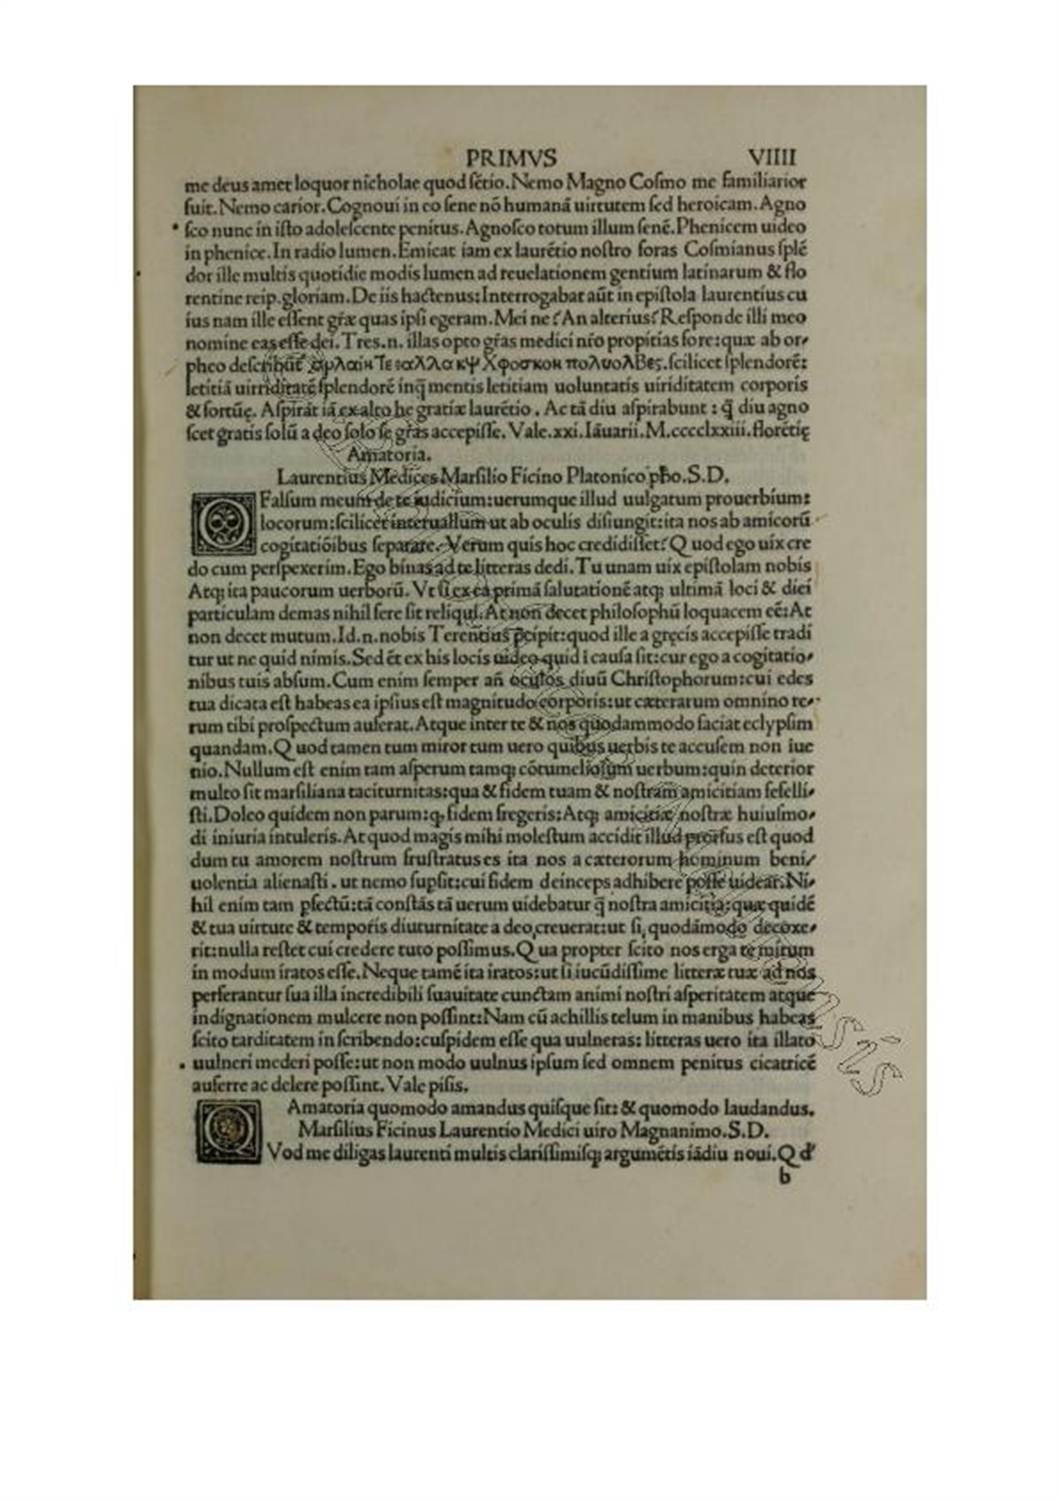 PRIMVS VIIII
me deus amet loquor nicholae quod sẽtio.Nemo Magno Cosmo me familiarior
fuit.Nemo carior.Cognoui in eo sene nõ humanã uirtutem sed heroicam.Agno
sco nunc in isto adolescente penitus.Agnosco totum illum senẽ.Phenicem uideo
in phenice.In radio lumen.Emicat iam ex laurẽtio nostro foras Cosmianus splẽ
dor ille multis quotidie modis lumen ad reuelationem gentium latinarum & flo
rentine reip.gloriam.De iis hactenus:Interrogabat aũt in epistola laurentius cu
ius nam ille essent græ quas ipsi egeram.Mei ne?An alterius?Responde illi meo
nomine eas esse dei.Tres.n.illas opto gr̃as medici nr̃o propitias fore:quæ ab or⸗
pheo describũt πολυολΒες.scilicet splendorẽ:
letitiã uirriditatẽ splendorẽ inq̃ mentis letitiam uoluntatis uiriditatem corporis
& fortũę. Aspirãt iã ex alto he gratiæ laurẽtio. Ac tã diu aspirabunt : q̃ diu agno
scet gratis solũ a deo solo se gr̃as accepisse. Vale.xxi.Iãuarii.M.cccclxxiii.florẽtię
Amatoria.
Laurentius Medices Marsilio Ficino Platonico pho.S.D.
O Falsum meum de te iudicium:uerumque illud uulgatum prouerbium:
locorum:scilicet interuallum ut ab oculis disiungit:ita nos ab amicorũ
cogitatiõibus separare. Verum quis hoc credidisset?Q uod ego uix cre
do cum perspexerim.Ego binas ad te litteras dedi.Tu unam uix epistolam nobis
Atq; ita paucorum uerborũ. Vt si ex ea primã salutationẽ atq; ultimã loci & diei
particulam demas nihil fere sit reliqui.At non decet philosophũ loquacem eẽ:At
non decet mutum.Id.n.nobis Terentius p̃cipit:quod ille a gręcis accepisse tradi
tur ut ne quid nimis.Sed ẽt ex his locis uideo quid ĩ causa sit:cur ego a cogitatio⸗
nibus tuis absum.Cum enim semper añ oculos diuũ Christophorum:cui edes
tua dicata est habeas ea ipsius est magnitudo corporis:ut cæterarum omnino re⸗
rum tibi prospectum auferat.Atque inter te & nos quodammodo faciat eclypsim
quandam.Q uod tamen tum miror tum uero quibus uerbis te accusem non iue
nio.Nullum est enim tam asperum tamq; cõtumeliosum uerbum:quin deterior
multo sit marsiliana taciturnitas:qua & fidem tuam & nostram amicitiam fefelli⸗
sti.Doleo quidem non parum:q, fidem fregeris:Atq; amicitiæ nostræ huiusmo⸗
di iniuria intuleris.At quod magis mihi molestum accidit illud prorsus est quod
dum tu amorem nostrum frustratus es ita nos a cæterorum hominum beni⸗
uolentia alienasti . ut nemo supsit:cui fidem deinceps adhibere posse uidear.Ni⸗
hil enim tam pfectũ:tã constãs tã uerum uidebatur q̃ nostra amicitia:quæ quidẽ
& tua uirtute & temporis diuturnitate a deo creuerat:ut si quodãmodo decoxe⸗
rit:nulla restet cui credere tuto possimus.Q ua propter scito nos erga te mirum
in modum iratos esse.Neque tamẽ ita iratos:ut si iucũdissime litteræ tuæ ad nos
perferantur sua illa incredibili suauitate cunctam animi nostri asperitatem atque
indignationem mulcere non possint:Nam cũ achillis telum in manibus habeas
scito tarditatem in scribendo:cuspidem esse qua uulneras: litteras uero ita illato
uulneri mederi posse:ut non modo uulnus ipsum sed omnem penitus cicatricẽ
auferre ac delere possint. Vale pisis.
Amatoria quomodo amandus quisque sit: & quomodo laudandus.
Marsilius Ficinus Laurentio Medici uiro Magnanimo.S.D.
Q Vod me diligas laurenti multis clarissimisq; argumẽtis iãdiu noui.Q d'
b